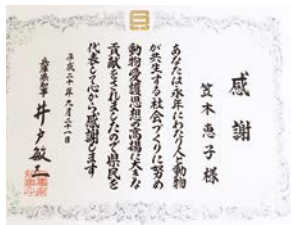 感謝
笠木恵子様
あなたは永年にわたり人と動物
が共生する社会づくりに努め
動物愛護思想の高揚に大きな
貢献をされましたので県民を
代表して心から感謝します
平成二十年九月二十一日
兵庫県知事 井戸敏三